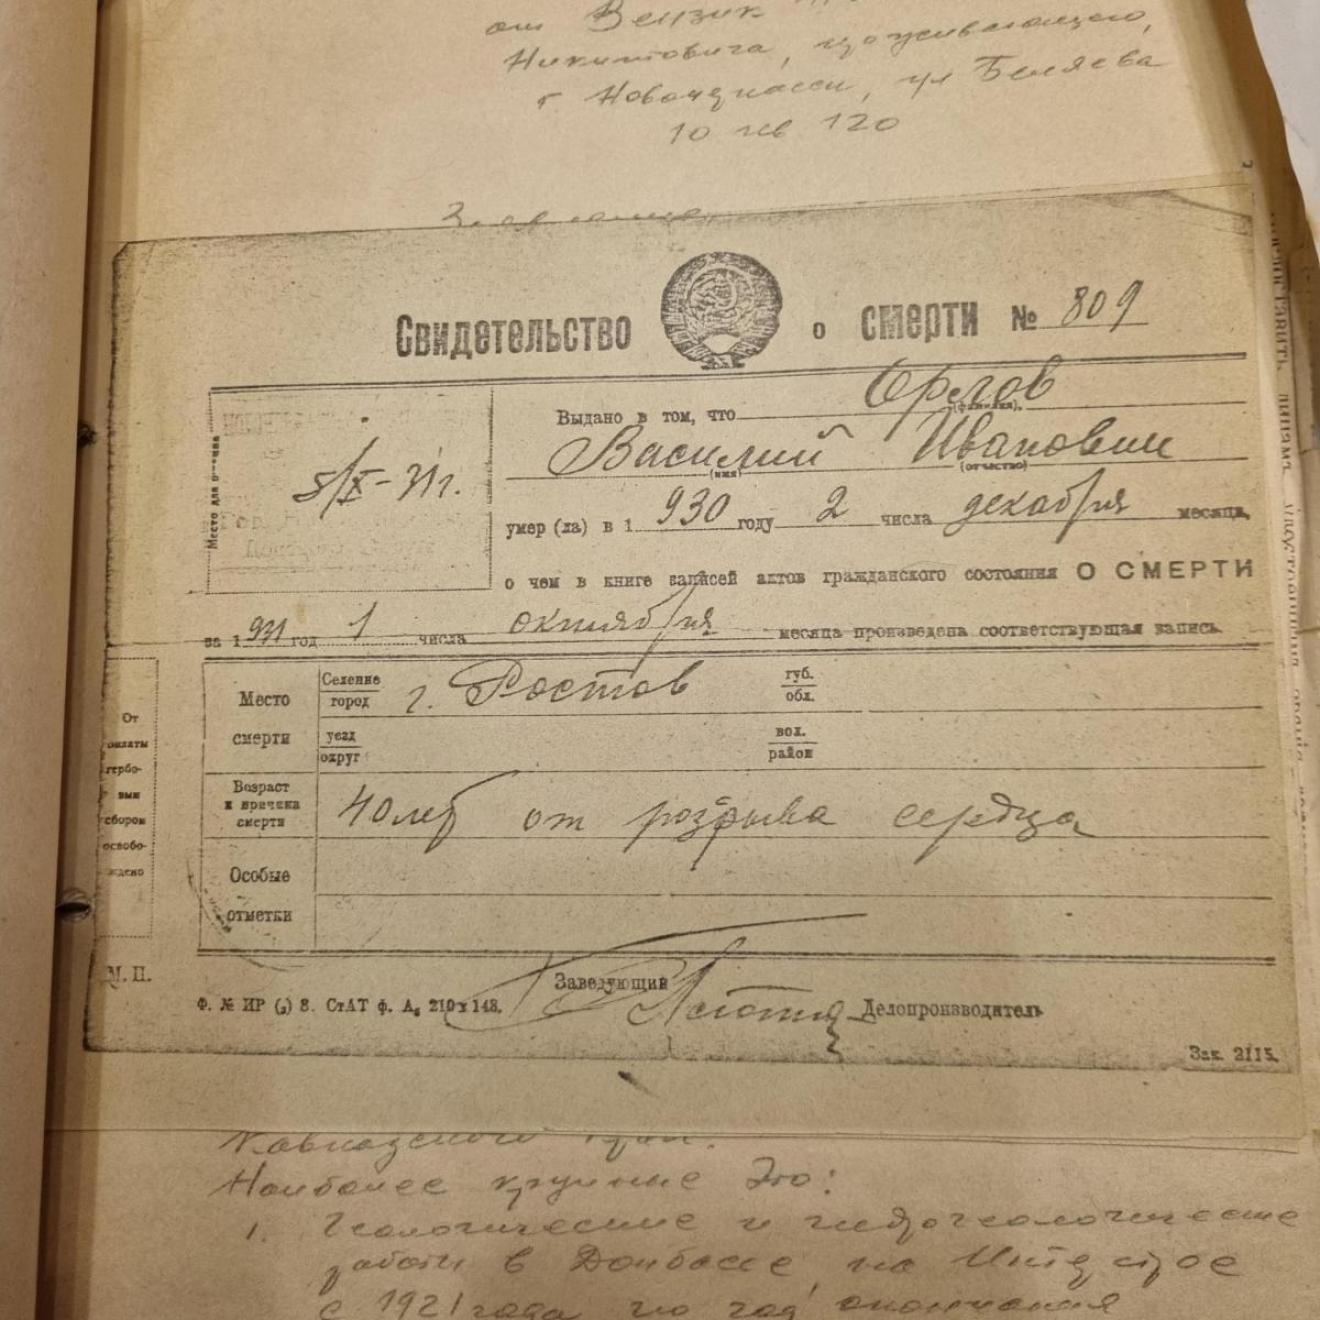 от Вензик
Никитовича, проживающего,
г Новочеркасск, ул Беляева
10 кв 120
Свидетельство о смерти № 809
Место для
5/X-31г.
Выдано в том, что Орлов
(фамилия).
Василий Иванович
(имя) (отчество)
умер (ла) в 1 930 году 2 числа декабря месяца,
о чем в книге записей актов гражданского состояния О СМЕРТИ
за 1 931 год 1 числа октября месяца произведена соответствующая запись.
Место смерти
Селение город г. Ростов губ. обл.
уезд округ вол. район
Возраст и причина смерти 40 лет от розрыва сердца
Особые отметки
От оплаты гербовым сбором освобождено
М. П.
Заведующий
Ф. № ИР 8. СтАТ ф. А, 210 x 148.
Делопроизводитель
Зак. 2115.
Кавказского края.
Наиболее крупные Это:
1. Геологические и гидрогеологические
работы в Донбассе, на
с 1921 года по год окончания